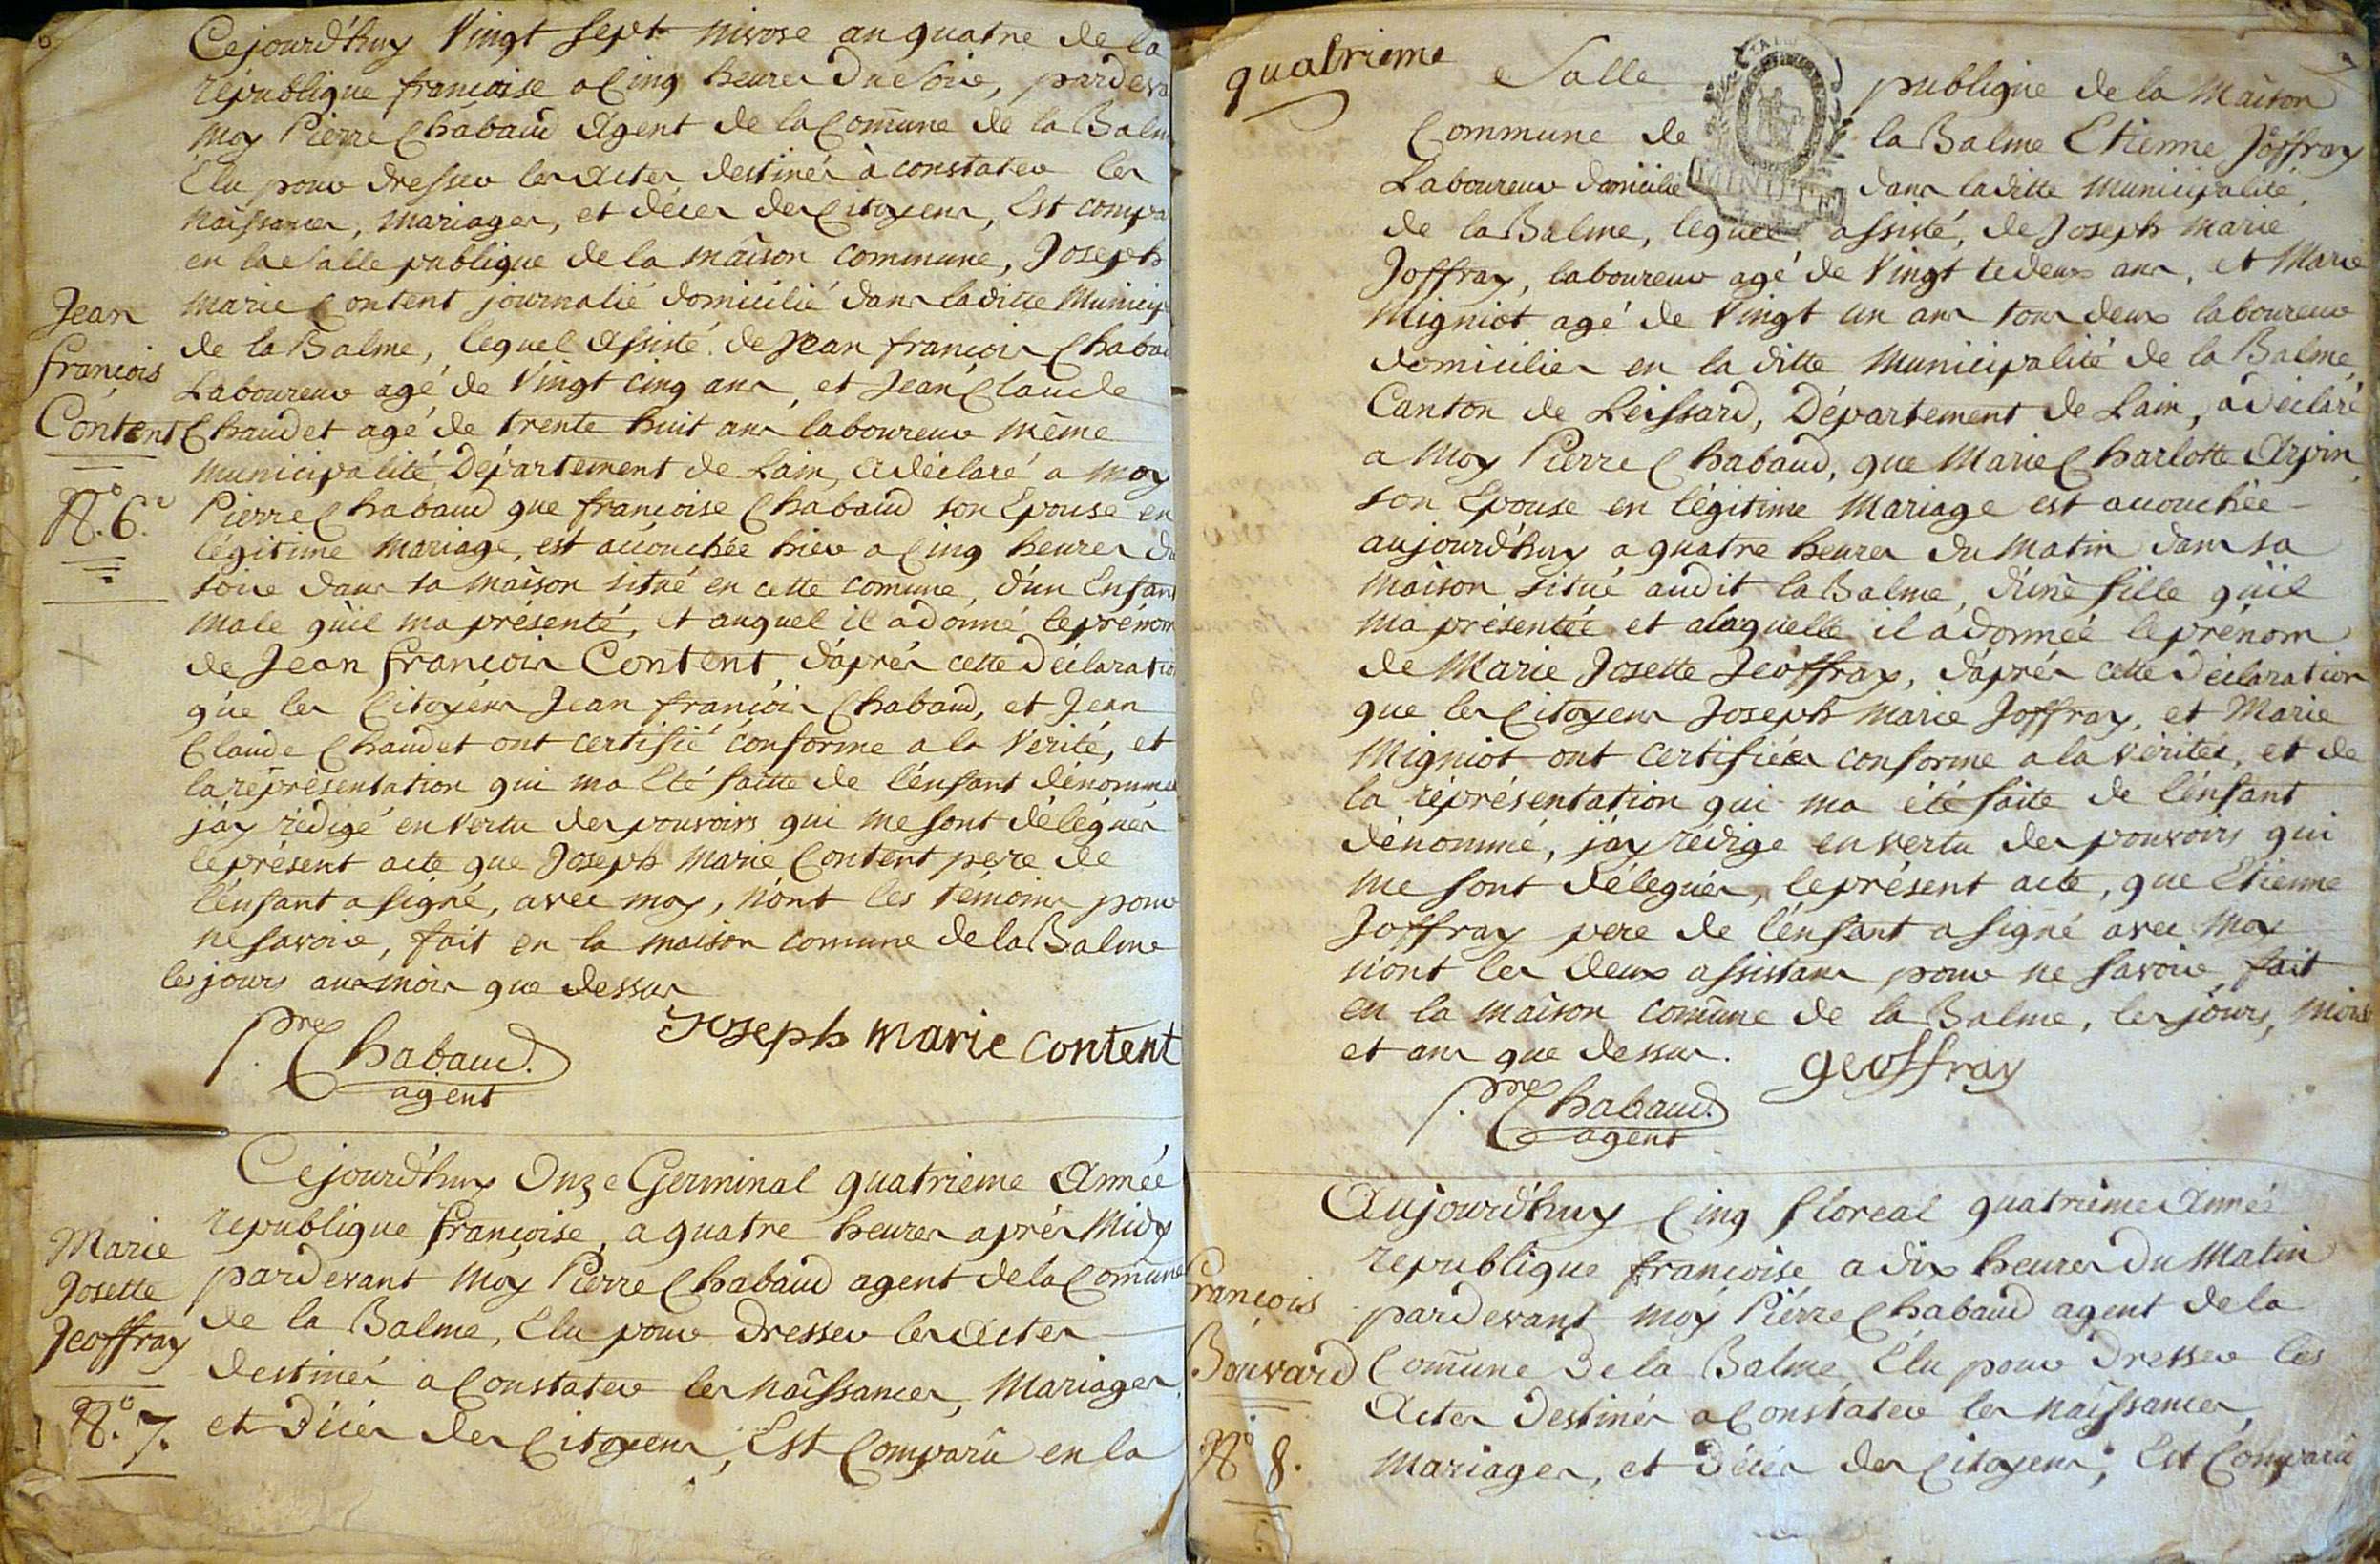 Cejourd'huy Vingt sept nivose an quatre de la
république françoise a Cinq heures du Soir, pardeva
moy Pierre Chabaud Agent de la Comune de la Balm
Elu pour dresser les actes destinés à constater les
naissances, mariages, et décès des Citoyens, Est compa
en la Salle publique de la maison commune, Joseph
Jean
françois
Content
N.º 6.e
marie Content journalié domicilié dans laditte Municip
de la Balme, lequel assisté de Jean françois Chabau
Laboureur agé de Vingt cinq ans, et Jean Claude
Chaudet agé de trente huit ans laboureur même
municipalité Département de Lain, a déclaré a moy
Pierre Chabaud que françoise Chabaud son Epouse en
légitime mariage, est accouchée hier a Cinq heures du
soir dans sa maison situé en cette comune, d'un Enfant
male qu'il ma présenté, et auquel il a donné le prénom
de Jean françois Content, d'après cette déclaration
que les Citoyens Jean françois Chabaud, et Jean
Claude Chaudet ont certifié conforme a la Vérité, et
la représentation qui ma Eté faitte de l'enfant dénommé
j'ay rédigé en vertu des pouvoirs qui me sont délégués
le présent acte que Joseph Marie Content pere de
l'enfant a signé, avec moy, n'ont les témoins pour
ne savoir, fait en la maison comune de la Balme
les jours ans mois que dessus
Joseph marie content
P.re Chabaud.
agent
Cejourd'huy Onze Germinal quatrième Année
republique françoise, a quatre heures après Midy
pardevant moy Pierre Chabaud agent de la Comune
de la Balme, Elu pour dresser les actes
destinés a Constater les naissances, Mariages,
et décès des Citoyens, Est Comparû en la
Marie
Josette
Jeoffray
N.º 7.
quatrieme
Salle publique de la Maison
Commune de la Balme Etienne Joffray
Laboureur domicilié dans laditte municipalité
de la Balme, lequel assisté, de Joseph Marie
Joffray, laboureur agé de Vingt te deux ans, et Marie
Migniot agé de Vingt un ans tous deux laboureur
domicilies en la ditte Municipalité de la Balme,
Canton de Leissard, Département de Lain, a déclaré
a Moy Pierre Chabaud, que Marie Charlotte Arpin,
son Epouse en légitime Mariage est accouchée
aujourd'huy a quatre heures du Matin dans sa
Maison situé audit la Balme, d'une fille qu'il
ma présentée et alaquelle il a donnée le prénom
de Marie Josette Jeoffray, d'après cette déclaration
que les Citoyens Joseph Marie Joffray, et Marie
Migniot ont certifiée conforme a la Véritée, et de
la représentation qui ma été faite de l'énfant
dénommé, j'ay rédige en vertu des pouvoirs qui
me sont délegués, le présent acte, que Etienne
Joffray pere de l'énfant a signé avec Moy
n'ont les deux assistans pour ne savoir, fait
en la maison comune de la Balme, les jours, mois
et ans que dessus.
geoffray
P.re Chabaud.
agent
Aujourd'huy Cinq floreal quatrieme Année
republique françoise a dix heures du Matin
pardevant moy Pierre Chabaud agent de la
Comune de la Balme, Elu pour dresser les
Actes destinés a Constater les naissances,
Mariages, et décès des Citoyens, Est Comparû
françois
Bouvard
Nº 8.